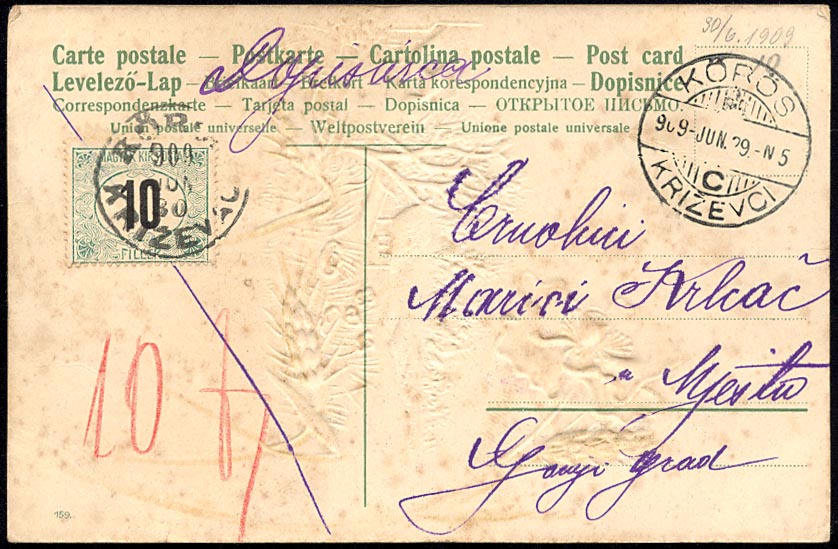 30/6.1909
Carte postale — Postkarte — Cartolina postale — Post card
Levelező-Lap — Brefkort — Karta korespondencyjna — Dopisnice
Dopisnica
Correspondenzkarte — Tarjeta postal — Dopisnica — ОТКРЫТОЕ ПИСЬМО.
Union postale universelle — Weltpostverein — Unione postale universale
KÖRÖS
909-JUN.29.-N5
C
KRIŽEVCI
MAGYAR KIR
10
FILLÉR
909
JUN
30
10 f
Crnohici
Marici Krkač
u Mjestu
Gornji grad
159.